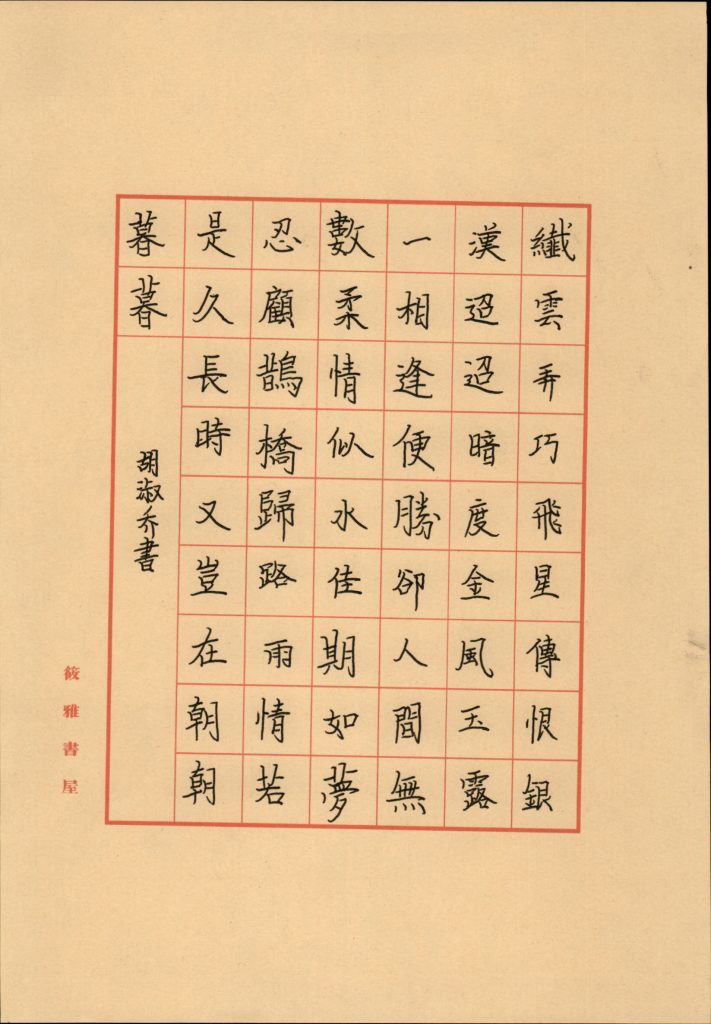 纖雲弄巧飛星傳恨銀
漢迢迢暗度金風玉露
一相逢便勝卻人間無
數柔情似水佳期如夢
忍顧鵲橋歸路兩情若
是久長時又豈在朝朝
暮暮
胡淑乔書
筱雅書屋